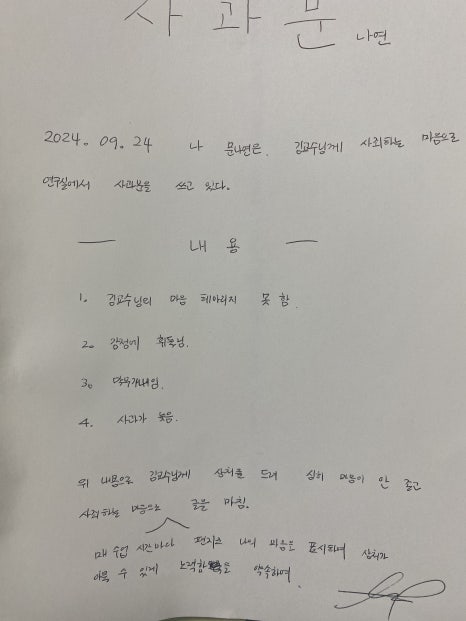 사과문
나연
2024. 09. 24 나 문나연은, 김교수님께 사죄하는 마음으로
연구실에서 사과문을 쓰고 있다.
내용
1. 김교수님의 마음 헤아리지 못 함.
2. 감정에 휘둘림.
3. 막무가내임.
4. 사과가 늦음.
위 내용으로 김교수님께 상처를 드려 심히 마음이 안 좋고
사죄하는 마음으로 글을 마침.
매 수업 시간마다 나의 마음을 표시하여 상처가
아물 수 있게 노력함을 약속하며